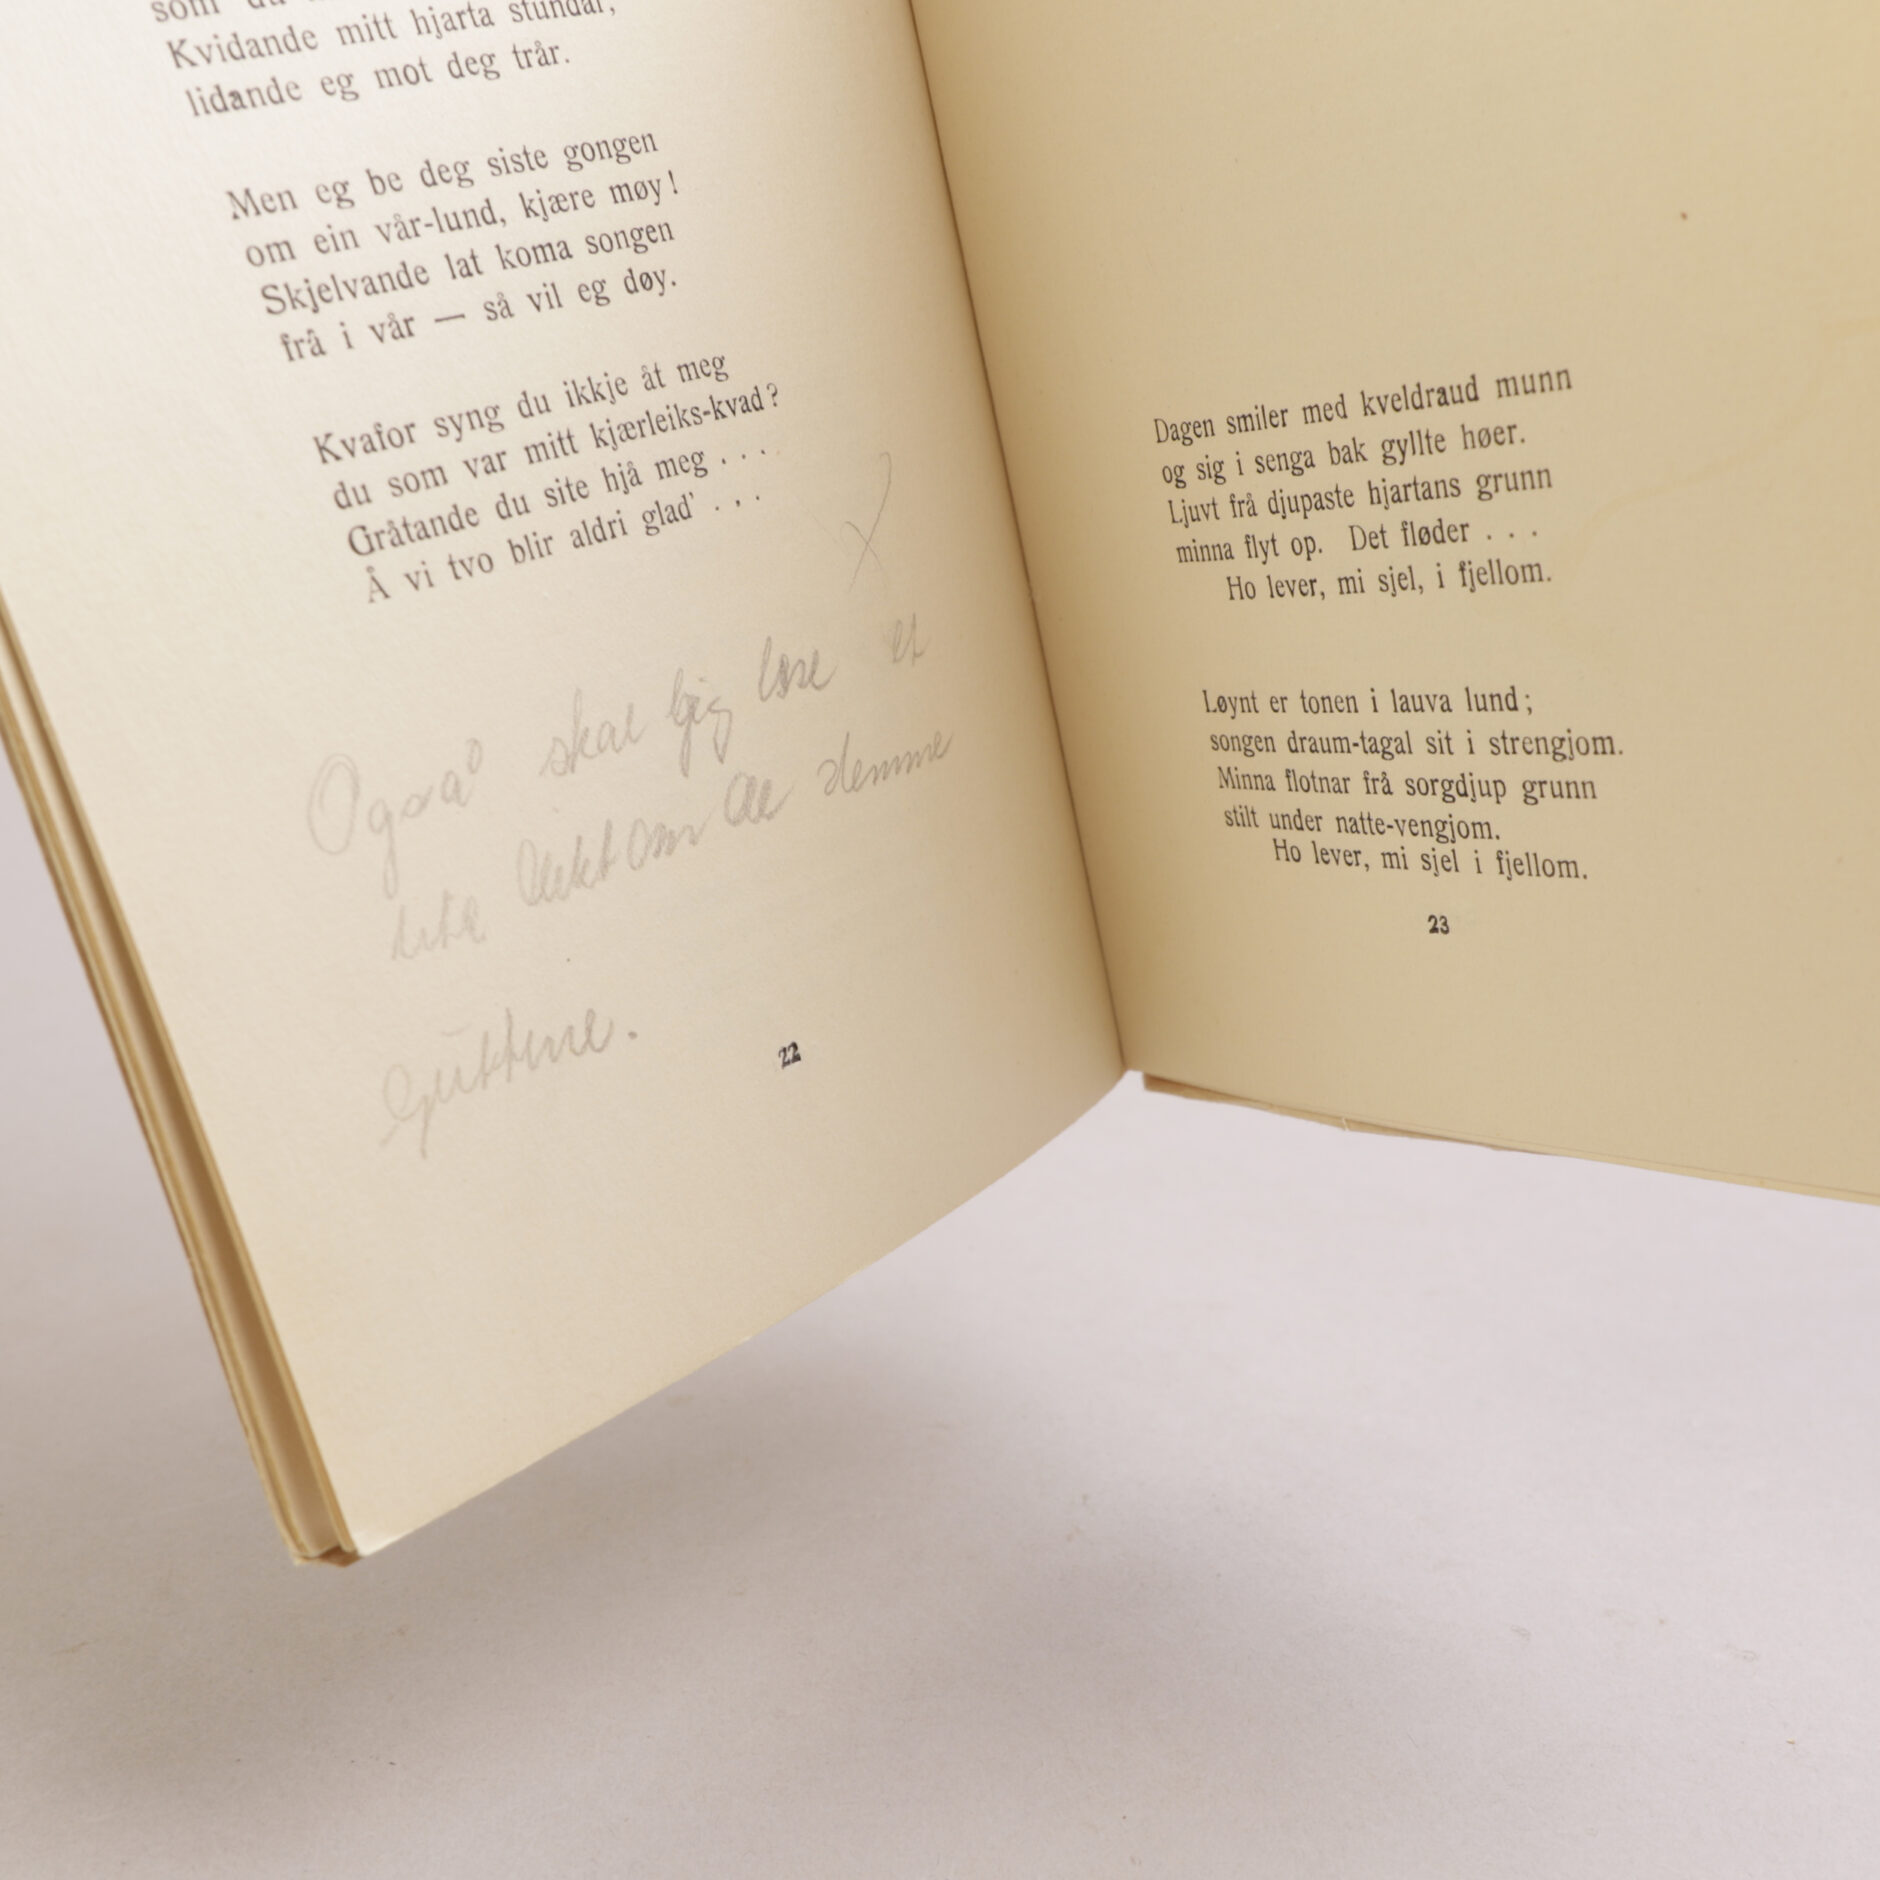 som du
Kvidande mitt hjarta stundar,
lidande eg mot deg trår.
Men eg be deg siste gongen
om ein vår-lund, kjære møy!
Skjelvande lat koma songen
frå i vår — så vil eg døy.
Kvafor syng du ikkje åt meg
du som var mitt kjærleiks-kvad?
Gråtande du site hjå meg . . .
Å vi tvo blir aldri glad' . . .
X
Også skal jeg læse et
lite dikt om de slemme
Guttene.
22
Dagen smiler med kveldraud munn
og sig i senga bak gyllte høer.
Ljuvt frå djupaste hjartans grunn
minna flyt op. Det fløder . . .
Ho lever, mi sjel, i fjellom.
Løynt er tonen i lauva lund;
songen draum-tagal sit i strengjom.
Minna flotnar frå sorgdjup grunn
stilt under natte-vengjom.
Ho lever, mi sjel i fjellom.
23